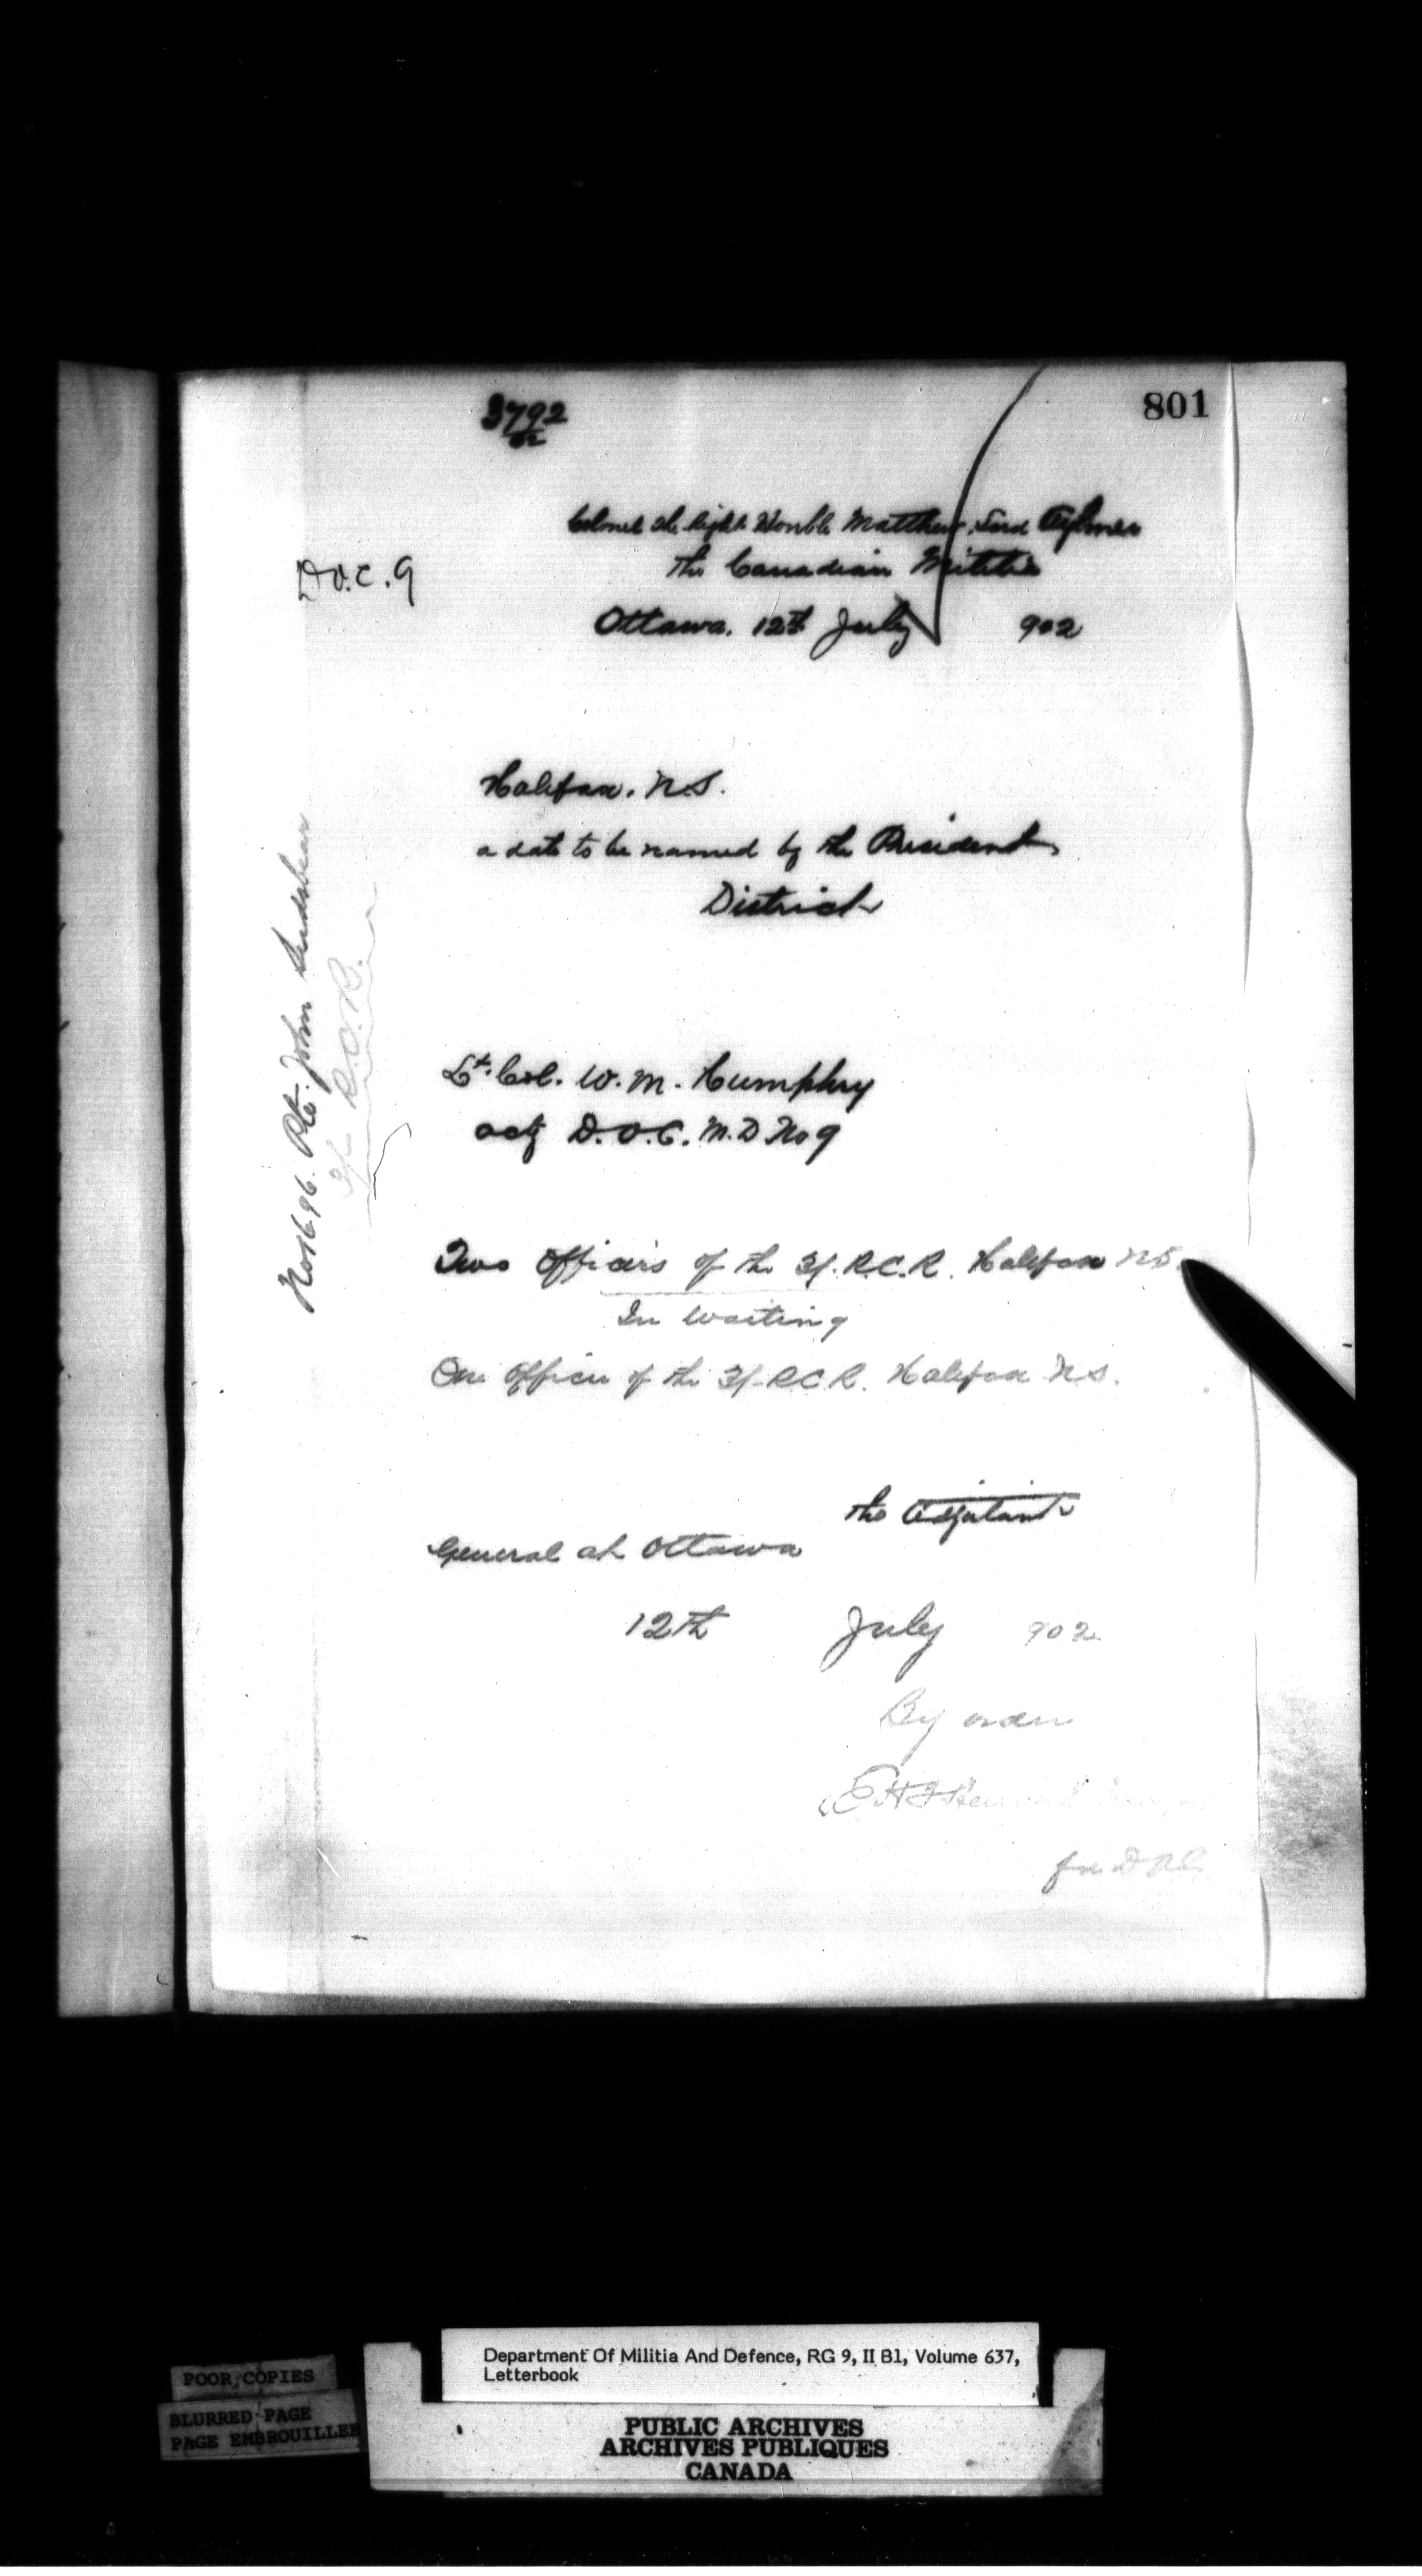 801
3792
02
Colonel the Right Honble Matthew, Lord Aylmer
The Canadian Militia
D.O.C. 9
Ottawa. 12th July 902
Halifax. N.S.
a date to be named by the President
District
No 1696. Pte. John
3/ R.C.R.
Lt. Col. W. M. Humphry
actg D.O.C. M.D No 9
Two Officers of the 3/. R.C.R. Halifax N.S.
In Waiting
One Officer of the 3/-R.C.R. Halifax N.S.
the Adjutant
General at Ottawa
12th July 902
By order
for D.A.G.
Department Of Militia And Defence, RG 9, II B1, Volume 637,
Letterbook
POOR COPIES
BLURRED PAGE
PAGE EMBROUILLEE
PUBLIC ARCHIVES
ARCHIVES PUBLIQUES
CANADA